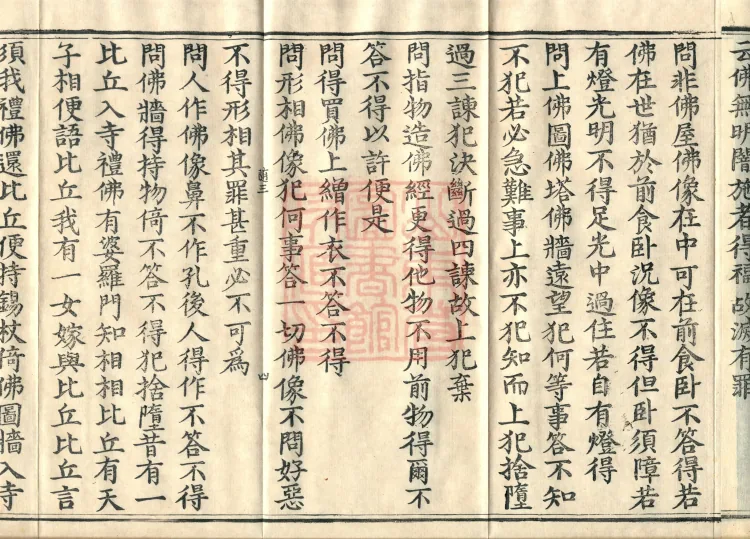 云佛無明闇施者得福故滅有罪
問非佛屋佛像在中可在前食卧不答得若
佛在世猶於前食卧況像不得但卧須障若
有燈光明不得足光中過住若自有燈得
問上佛圖佛塔佛牆遠望犯何等事答不知
不犯若必急難事上亦不犯知而上犯捨墮
過三諫犯決斷過四諫故上犯棄
問指物造佛經更得他物不用前物得爾不
答不得以許便是
問得買佛上繒作衣不答不得
問形相佛像犯何事答一切佛像不問好惡
不得形相其罪甚重必不可為
問人作佛像鼻不作孔後人得作不答不得
問佛牆得持物倚不答不得犯捨墮昔有一
比丘入寺禮佛有婆羅門知相相比丘有天
子相便語比丘我有一女嫁與比丘比丘言
須我禮佛還比丘便持錫杖倚佛圖牆入寺